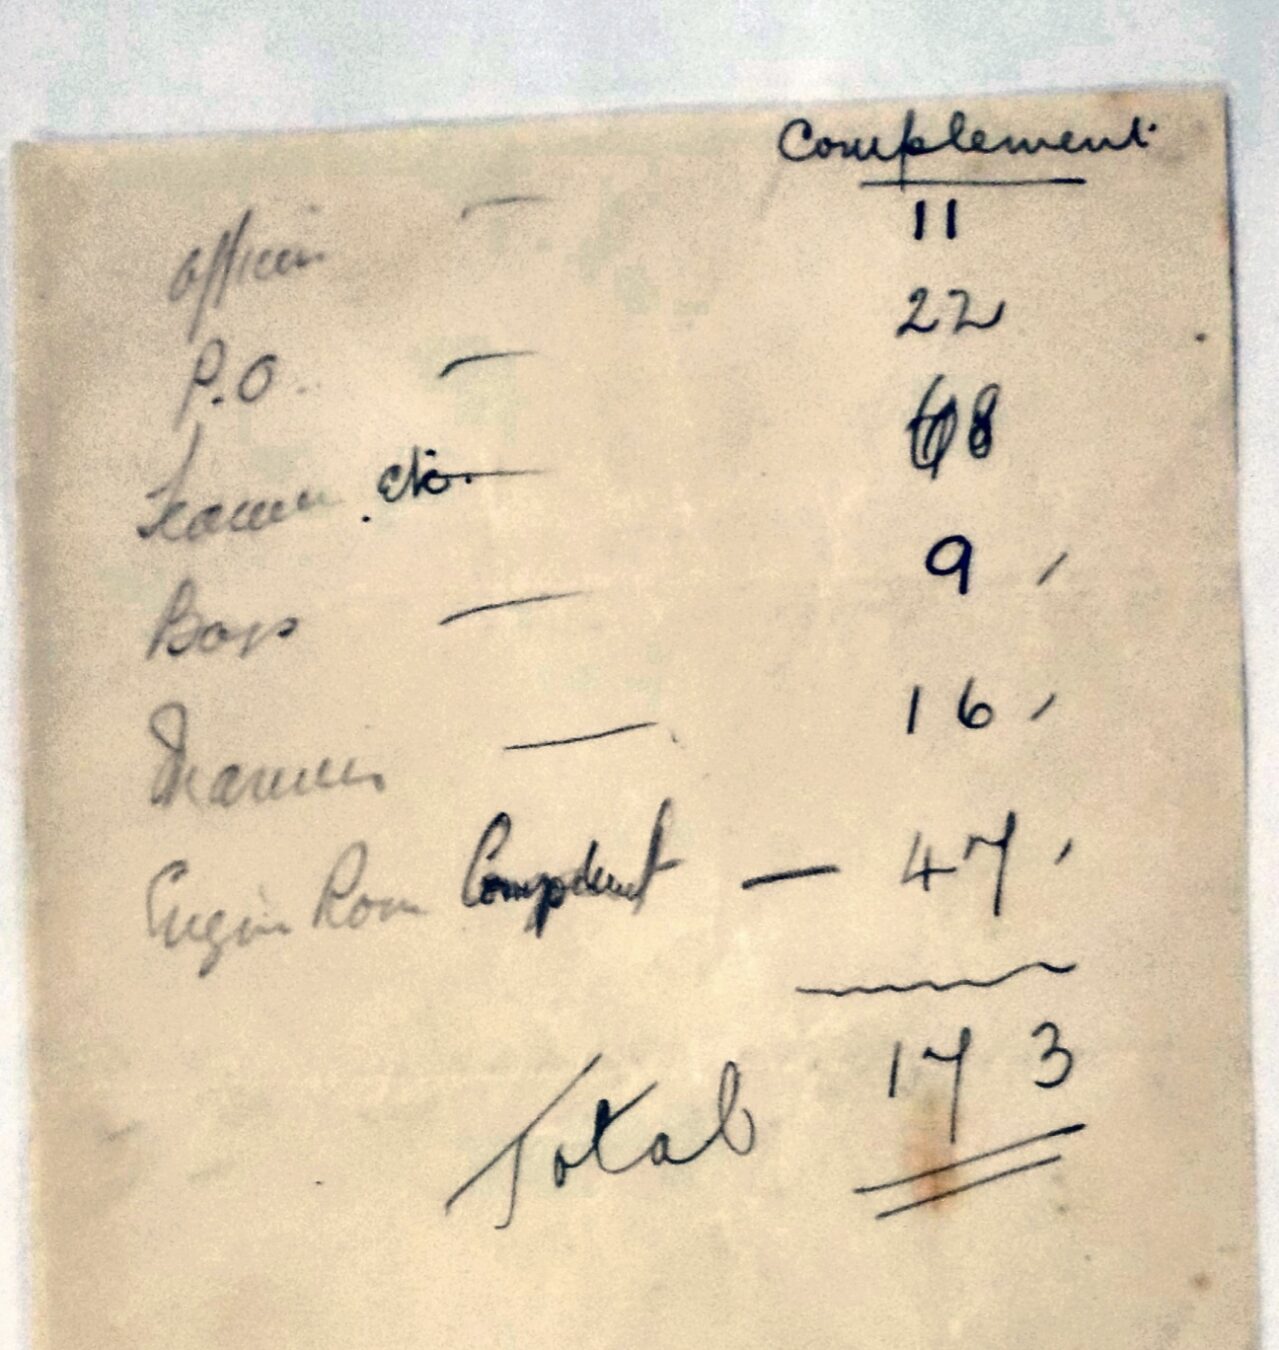 Complement
Officers — 11
P.O. — 22
Seamen etc. — 68
Boys — 9
Marines — 16
Engine Room Complement — 47
Total 173